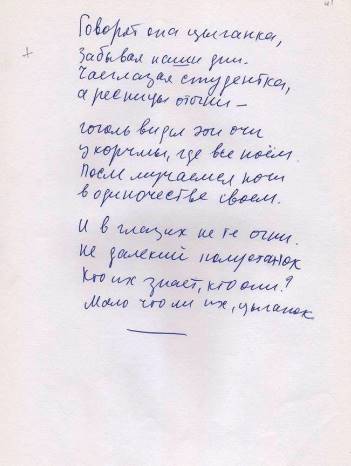 Говорят она цыганка,
Забывая наши дни.
глазая студентка,
а ресницы огни —
гоголь видел эти очи
у корчмы, где все поём.
После мучаемся ночи
в одиночестве своем.
И в глазах не те огни.
Не далекий полустанок
Кто их знает, кто они?
Мало что ли их, цыганок